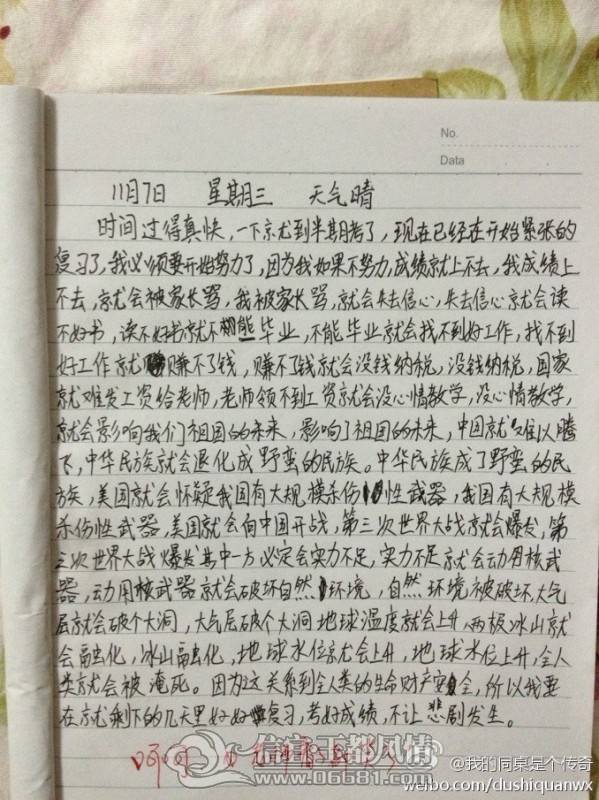 No.
Data
11月7日 星期三 天气晴
时间过得真快,一下就到半期考了,现在已经在开始紧张的
复习了,我必须要开始努力了,因为我如果不努力,成绩就上不去,我成绩上
不去,就会被家长骂,我被家长骂,就会失去信心,失去信心就会读
不好书,读不好书就不能毕业,不能毕业就会找不到好工作,找不到
好工作就赚不了钱,赚不了钱就会没钱纳税,没钱纳税,国家
就难发工资给老师,老师领不到工资就会没心情教学,没心情教学,
就会影响我们祖国的未来,影响了祖国的未来,中国就难以腾
飞,中华民族就会退化成野蛮的民族。中华民族成了野蛮的民
族,美国就会怀疑我国有大规模杀伤性武器,我国有大规模
杀伤性武器,美国就会向中国开战,第三次世界大战就会爆发,第
三次世界大战爆发其中一方必定会实力不足,实力不足就会动用核武
器,动用核武器就会破坏自然环境,自然环境被破坏,大气
层就会破个大洞,大气层破个大洞地球温度就会上升,两极冰山就
会融化,冰山融化,地球水位就会上升,地球水位上升,全人
类就会被淹死。因为这关系到全人类的生命财产安全,所以我要
在就剩下的几天里好好复习,考好成绩,不让悲剧发生。
信宜玉都风情
www.06681.com
@我的同桌是个传奇
weibo.com/dushiquanwx